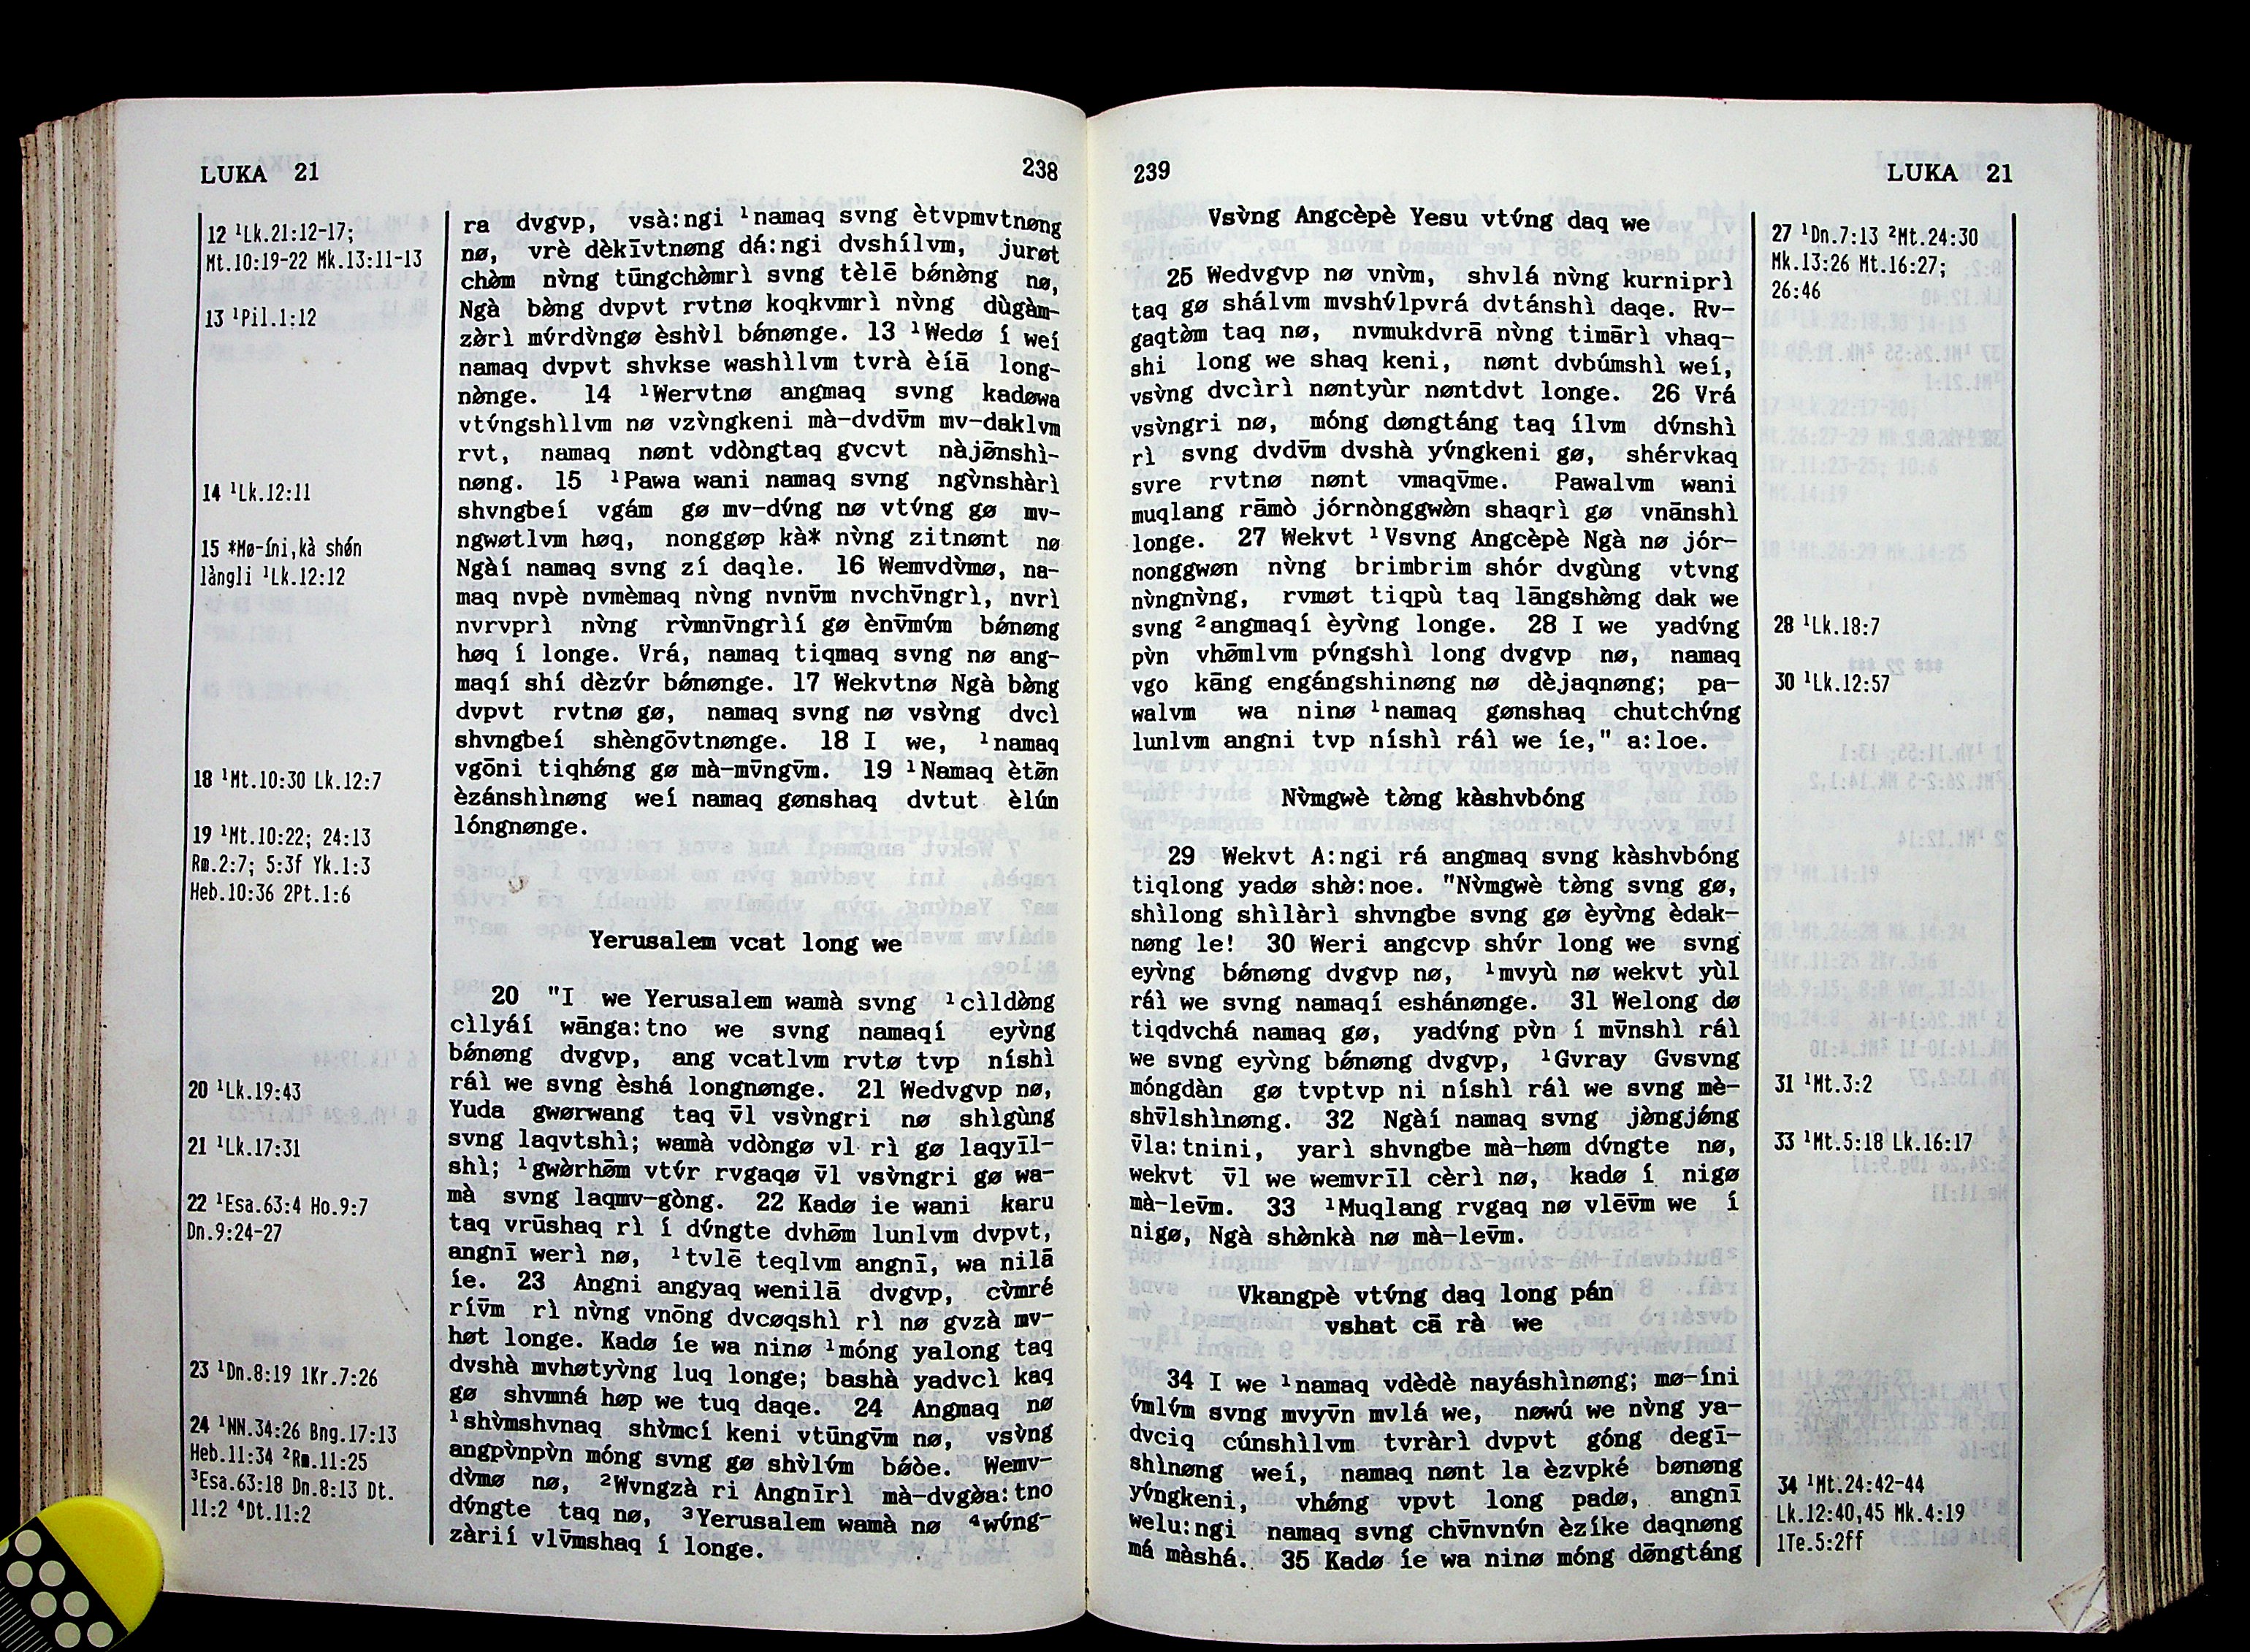 LUKA 21
238
12 ¹Lk.21:12-17;
Mt.10:19-22 Mk.13:11-13
13 ¹Pil.1:12
14 ¹Lk.12:11
15 *Mø-íni,kà shǿn
làngli ¹Lk.12:12
18 ¹Mt.10:30 Lk.12:7
19 ¹Mt.10:22; 24:13
Rm.2:7; 5:3f Yk.1:3
Heb.10:36 2Pt.1:6
20 ¹Lk.19:43
21 ¹Lk.17:31
22 ¹Esa.63:4 Ho.9:7
Dn.9:24-27
23 ¹Dn.8:19 1Kr.7:26
24 ¹NN.34:26 Bng.17:13
Heb.11:34 ²Rm.11:25
³Esa.63:18 Dn.8:13 Dt.
11:2 ⁴Dt.11:2
ra dvgvp, vsà:ngi ¹namaq svng ètvpmvtnøng
nø, vrè dèkīvtnøng dá:ngi dvshílvm, jurøt
chø̀m nv̀ng tūngchø̀mrì svng tèlē bǿnø̀ng nø,
Ngà bø̀ng dvpvt rvtnø koqkvmrì nv̀ng dùgàm-
zø̀rì mv́rdv̀ngø èshv̀l bǿnønge. 13 ¹Wedø í weí
namaq dvpvt shvkse washìlvm tvrà èíā long-
nø̀nge. 14 ¹Wervtnø angmaq svng kadøwa
vtv́ngshìllvm nø vzv̀ngkeni mà-dvdv̄m mv-daklvm
rvt, namaq nønt vdòngtaq gvcvt nàjø̄nshì-
nøng. 15 ¹Pawa wani namaq svng ngv̀nshàrì
shvngbeí vgám gø mv-dv́ng nø vtv́ng gø mv-
ngwøtlvm høq, nonggøp kà* nv̀ng zitnønt nø
Ngàí namaq svng zí daqìe. 16 Wemvdv̀mø, na-
maq nvpè nvmèmaq nv̀ng nvnv̄m nvchv̄ngrì, nvrì
nvrvprì nv̀ng rv̀mnv̄ngrìí gø ènv̄mv́m bǿnøng
høq í longe. Vrá, namaq tiqmaq svng nø ang-
maqí shí dèzv́r bǿnønge. 17 Wekvtnø Ngà bø̀ng
dvpvt rvtnø gø, namaq svng nø vsv̀ng dvcì
shvngbeí shèngōvtnønge. 18 I we, ¹namaq
vgōni tiqhǿng gø mà-mv̄ngv̄m. 19 ¹Namaq ètø̄n
èzánshìnøng weí namaq gønshaq dvtut èlún
lóngnønge.
Yerusalem vcat long we
20 "I we Yerusalem wamà svng ¹cìldø̀ng
cìlyáí wānga:tno we svng namaqí eyv̀ng
bǿnøng dvgvp, ang vcatlvm rvtø tvp níshì
ráì we svng èshá longnønge. 21 Wedvgvp nø,
Yuda gwørwang taq v̄l vsv̀ngri nø shìgùng
svng laqvtshì; wamà vdòngø vl rì gø laqyīl-
shì; ¹gwø̀rhø̄m vtv́r rvgaqø v̄l vsv̀ngri gø wa-
mà svng laqmv-gòng. 22 Kadø ie wani karu
taq vrūshaq rì í dv́ngte dvhø̄m lunlvm dvpvt,
angnī werì nø, ¹tvlē teqlvm angnī, wa nilā
íe. 23 Angni angyaq wenilā dvgvp, cv̀mré
rív̄m rì nv̀ng vnōng dvcøqshì rì nø gvzà mv-
høt longe. Kadø íe wa ninø ¹móng yalong taq
dvshà mvhøtyv̀ng luq longe; bashà yadvcì kaq
gø shvmná høp we tuq daqe. 24 Angmaq nø
¹shv̀mshvnaq shv̀mcí keni vtūngv̄m nø, vsv̀ng
angpv̀npv̀n móng svng gø shv̀lv́m bǿòe. Wemv-
dv̀mø nø, ²Wvngzà ri Angnīrì mà-dvgø̀a:tno
dv́ngte taq nø, ³Yerusalem wamà nø ⁴wv́ng-
zàrìí vlv̄mshaq í longe.
239
LUKA 21
Vsv̀ng Angcèpè Yesu vtv́ng daq we
25 Wedvgvp nø vnv̀m, shvlá nv̀ng kurniprì
taq gø shálvm mvshv́lpvrá dvtánshì daqe. Rv-
gaqtø̀m taq nø, nvmukdvrā nv̀ng timārì vhaq-
shi long we shaq keni, nønt dvbúmshì weí,
vsv̀ng dvcìrì nøntyùr nøntdvt longe. 26 Vrá
vsv̀ngri nø, móng døngtáng taq ílvm dv́nshì
rì svng dvdv̄m dvshà yv́ngkeni gø, shérvkaq
svre rvtnø nønt vmaqv̄me. Pawalvm wani
muqlang rāmò jórnònggwø̀n shaqrì gø vnānshì
longe. 27 Wekvt ¹Vsvng Angcèpè Ngà nø jór-
nonggwøn nv̀ng brimbrim shór dvgùng vtvng
nv̀ngnv̀ng, rvmøt tiqpù taq lāngshø̀ng dak we
svng ²angmaqí èyv̀ng longe. 28 I we yadv́ng
pv̀n vhø̄mlvm pv́ngshì long dvgvp nø, namaq
vgo kāng engángshinøng nø dèjaqnøng; pa-
walvm wa ninø ¹namaq gønshaq chutchv́ng
lunlvm angni tvp níshì ráì we íe," a:loe.
Nv̀mgwè tø̀ng kàshvbóng
29 Wekvt A:ngi rá angmaq svng kàshvbóng
tiqlong yadø shø̀:noe. "Nv̀mgwè tø̀ng svng gø,
shìlong shìlàrì shvngbe svng gø èyv̀ng èdak-
nøng le! 30 Weri angcvp shv́r long we svng
eyv̀ng bǿnøng dvgvp nø, ¹mvyù nø wekvt yùl
ráì we svng namaqí eshánønge. 31 Welong dø
tiqdvchá namaq gø, yadv́ng pv̀n í mv̄nshì ráì
we svng eyv̀ng bǿnøng dvgvp, ¹Gvray Gvsvng
móngdàn gø tvptvp ni níshì ráì we svng mè-
shv̄lshìnøng. 32 Ngàí namaq svng jø̀ngjǿng
v̄la:tnini, yarì shvngbe mà-høm dv́ngte nø,
wekvt v̄l we wemvrīl cèrì nø, kadø í nigø
mà-lev̄m. 33 ¹Muqlang rvgaq nø vlēv̄m we í
nigø, Ngà shø̀nkà nø mà-lev̄m.
Vkangpè vtv́ng daq long pán
vshat cā rà we
34 I we ¹namaq vdèdè nayáshìnøng; mø-íni
v́mlv́m svng mvyv̄n mvlá we, nøwú we nv̀ng ya-
dvciq cúnshìlvm tvràrì dvpvt góng degī-
shìnøng weí, namaq nønt la èzvpké bønøng
yv́ngkeni, vhǿng vpvt long padø, angnī
welu:ngi namaq svng chv̄nvnv́n èzíke daqnøng
má màshá. 35 Kadø íe wa ninø móng dø̄ngtáng
27 ¹Dn.7:13 ²Mt.24:30
Mk.13:26 Mt.16:27;
26:46
28 ¹Lk.18:7
30 ¹Lk.12:57
31 ¹Mt.3:2
33 ¹Mt.5:18 Lk.16:17
34 ¹Mt.24:42-44
Lk.12:40,45 Mk.4:19
1Te.5:2ff